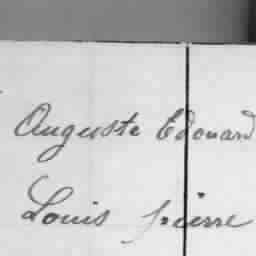 Auguste Edouard
Louis pierre